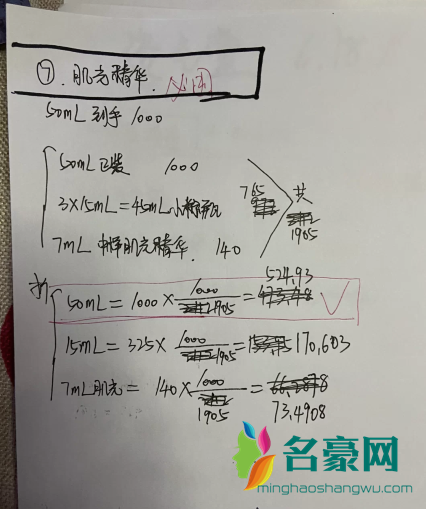 ⑦.肌充精华.
50mL到手1000
50mL正装 1000
3×15mL=45mL小棕瓶
7mL 肌充精华. 140
765
共
1905
折
50mL=1000×1000/1905=524.93 ✓
15mL=325×1000/1905=170.603
7mL肌充=140×1000/1905=73.4908
名豪网
minghaoshangwu.com